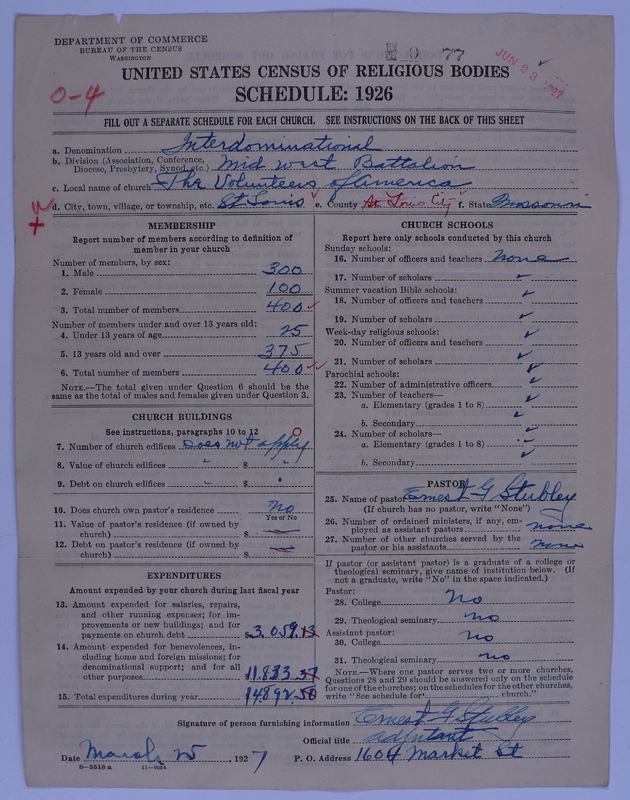 DEPARTMENT OF COMMERCE
BUREAU OF THE CENSUS
WASHINGTON
9 77
JUN 23 1927
UNITED STATES CENSUS OF RELIGIOUS BODIES
SCHEDULE: 1926
0-4
FILL OUT A SEPARATE SCHEDULE FOR EACH CHURCH. SEE INSTRUCTIONS ON THE BACK OF THIS SHEET
a. Denomination Interdominational
b. Division (Association, Conference, Diocese, Presbytery, Synod, etc.) Mid West Battalion
c. Local name of church The Volunteers of America
d. City, town, village, or township, etc. St Louis e. County St Louis City f. State Missouri
MEMBERSHIP
Report number of members according to definition of
member in your church
Number of members, by sex:
1. Male 300
2. Female 100
3. Total number of members 400
Number of members under and over 13 years old:
4. Under 13 years of age 25
5. 13 years old and over 375
6. Total number of members 400
NOTE.—The total given under Question 6 should be
same as the total of males and females given under Question 3.
CHURCH BUILDINGS
See instructions, paragraphs 10 to 12
7. Number of church edifices Does not apply
8. Value of church edifices $
9. Debt on church edifices $
10. Does church own pastor's residence No
Yes or No
11. Value of pastor's residence (if owned by
church) $
12. Debt on pastor's residence (if owned by
church) $
EXPENDITURES
Amount expended by your church during last fiscal year
13. Amount expended for salaries, repairs,
and other running expenses; for im-
provements or new buildings; and for
payments on church debt $3,059.13
14. Amount expended for benevolences, in-
cluding home and foreign missions; for
denominational support; and for all
other purposes $11,833.37
15. Total expenditures during year 14892.50
CHURCH SCHOOLS
Report here only schools conducted by this church
Sunday schools:
16. Number of officers and teachers none
17. Number of scholars
Summer vacation Bible schools:
18. Number of officers and teachers
19. Number of scholars
Week-day religious schools:
20. Number of officers and teachers
21. Number of scholars
Parochial schools:
22. Number of administrative officers
23. Number of teachers—
a. Elementary (grades 1 to 8)
b. Secondary
24. Number of scholars—
a. Elementary (grades 1 to 8)
b. Secondary
PASTOR
25. Name of pastor Ernest G Stubley
(If church has no pastor, write "None")
26. Number of ordained ministers, if any, em-
ployed as assistant pastors none
27. Number of other churches served by the
pastor or his assistants none
If pastor (or assistant pastor) is a graduate of a college or
theological seminary, give name of institution below. (If
not a graduate, write "No" in the space indicated.)
Pastor:
28. College No
29. Theological seminary no
Assistant pastor:
30. College No
31. Theological seminary no
NOTE.—Where one pastor serves two or more churches,
Questions 28 and 29 should be answered only on the schedule
for one of the churches; on the schedules for the other churches,
write "See schedule for church."
Signature of person furnishing information Ernest G Stubley
Official title adjutant
Date March 25, 1927 P. O. Address 1604 Market St
8—5518 a 11—9054